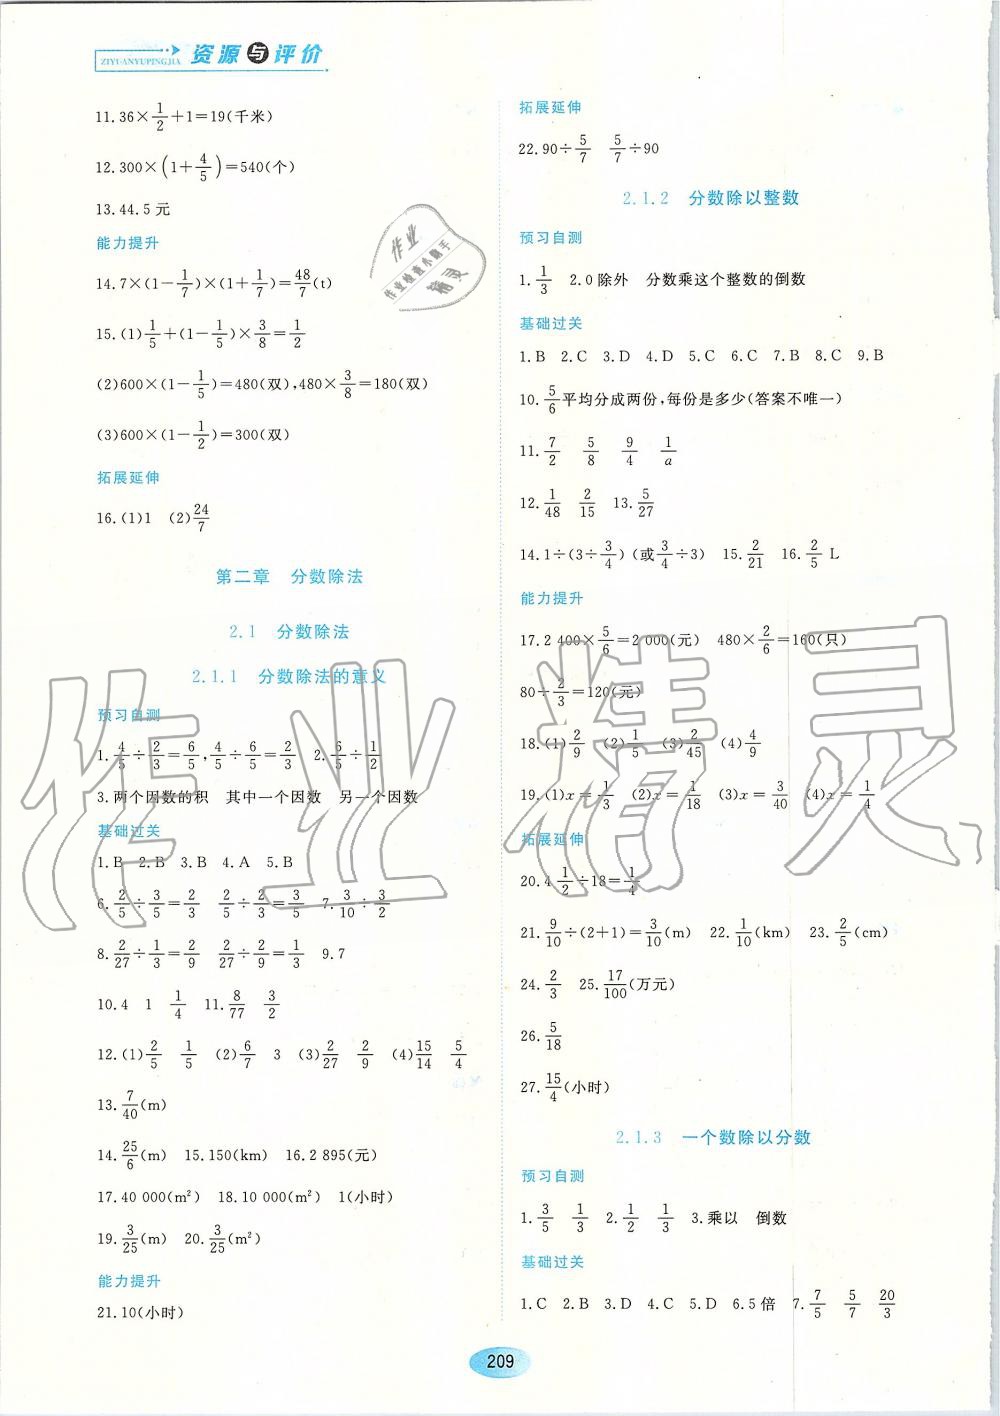 ZIYUANYUPINGJIA 资源与评价
11.36×1/2+1=19(千米)
12.300×(1+4/5)=540(个)
13.44.5元
能力提升
14.7×(1-1/7)×(1+1/7)=48/7(t)
15.(1)1/5+(1-1/5)×3/8=1/2
(2)600×(1-1/5)=480(双),480×3/8=180(双)
(3)600×(1-1/2)=300(双)
拓展延伸
16.(1)1 (2)24/7
第二章 分数除法
2.1 分数除法
2.1.1 分数除法的意义
预习自测
1.4/5÷2/3=6/5,4/5÷6/5=2/3 2.6/5÷1/2
3.两个因数的积 其中一个因数 另一个因数
基础过关
1.B 2.B 3.B 4.A 5.B
6.2/5÷3/5=2/3 2/5÷2/3=3/5 7.3/10÷3/2
8.2/27÷1/3=2/9 2/27÷2/9=1/3 9.7
10.4 1 1/4 11.8/77 3/2
12.(1)2/5 1/5 (2)6/7 3 (3)2/27 2/9 (4)15/14 5/4
13.7/40(m)
14.25/6(m) 15.150(km) 16.2 895(元)
17.40 000(m²) 18.10 000(m²) 1(小时)
19.3/25(m) 20.3/25(m²)
能力提升
21.10(小时)
拓展延伸
22.90÷5/7 5/7÷90
2.1.2 分数除以整数
预习自测
1.1/3 2.0除外 分数乘这个整数的倒数
基础过关
1.B 2.C 3.D 4.D 5.C 6.C 7.B 8.C 9.B
10.5/6平均分成两份,每份是多少(答案不唯一)
11.7/2 5/8 9/4 1/a
12.1/48 2/15 13.5/27
14.1÷(3÷3/4)(或3/4÷3) 15.2/21 16.2/5 L
能力提升
17.2 400×5/6=2 000(元) 480×2/6=160(只)
80÷2/3=120(元)
18.(1)2/9 (2)1/5 (3)2/45 (4)4/9
19.(1)x=1/3 (2)x=1/18 (3)x=3/40 (4)x=1/4
拓展延伸
20.4 1/2÷18=1/4
21.9/10÷(2+1)=3/10(m) 22.1/10(km) 23.2/5(cm)
24.2/3 25.17/100(万元)
26.5/18
27.15/4(小时)
2.1.3 一个数除以分数
预习自测
1.3/5 1/3 2.1/2 1/3 3.乘以 倒数
基础过关
1.C 2.B 3.D 4.C 5.D 6.5倍 7.7/5 5/7 20/3
209
作业
作业检查小助手
精灵
作业精灵